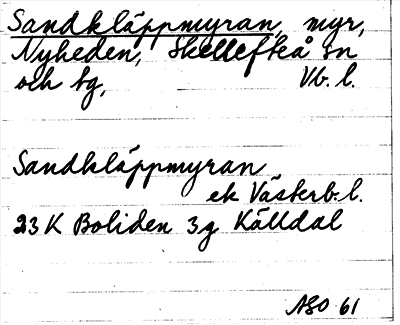 Sandkläppmyran, myr,
Nyheden, Skellefteå sn
och tg, Vb. l.
Sandkläppmyran
ek Västerb. l.
23 K Boliden 3g Källdal
NSO 61